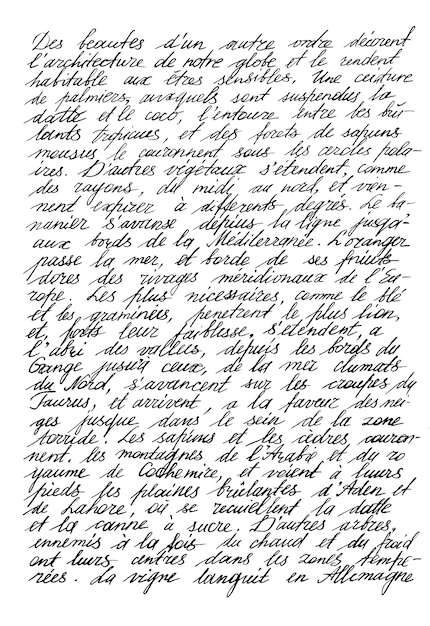 Des beautes d'un autre ordre décorent
l'architecture de notre globe et le rendent
habitable aux êtres sensibles. Une ceinture
de palmiers, auxquels sont suspendus la
datte et le coco, l'entoure entre les brû-
lants tropiques, et des forets de sapins
mousus le couronnent sous les cercles pola-
ires. D'autres végétaux s'étendent, comme
des rayons, du midi au nord, et vien-
nent expirer à différents degrés. Le ba-
nanier s'avanse depuis la ligne jusqu'
aux bords de la Méditerranée. L'oranger
passe la mer, et borde de ses fruits
dores des rivages méridionaux de l'Eu-
rope. Les plus nécessaires, comme le blé
et les graminées, penetrent le plus lion,
et, forts leur faiblesse, s'étendent, a
l'abri des vallées, depuis les bords du
Gange jusqu'à ceux, de la mer climats
du Nord, s'avancent sur les croupes du
Taurus, et arrivent, a la faveur des nei-
ges jusque dans le sein de la zone
torride. Les sapins et les cèdres couron-
nent. les montagnes de l'Arabie et du ro
yaume de Cachemire, et voient à leurs
pieds les plaines brûlantes d'Aden et
de Lahore, où se recueillent la datte
et la canne à sucre. D'autres arbres,
ennemis à la fois du chaud et du froid
ont leurs centres dans les zones tempe-
rées. La vigne languit en Allemagne